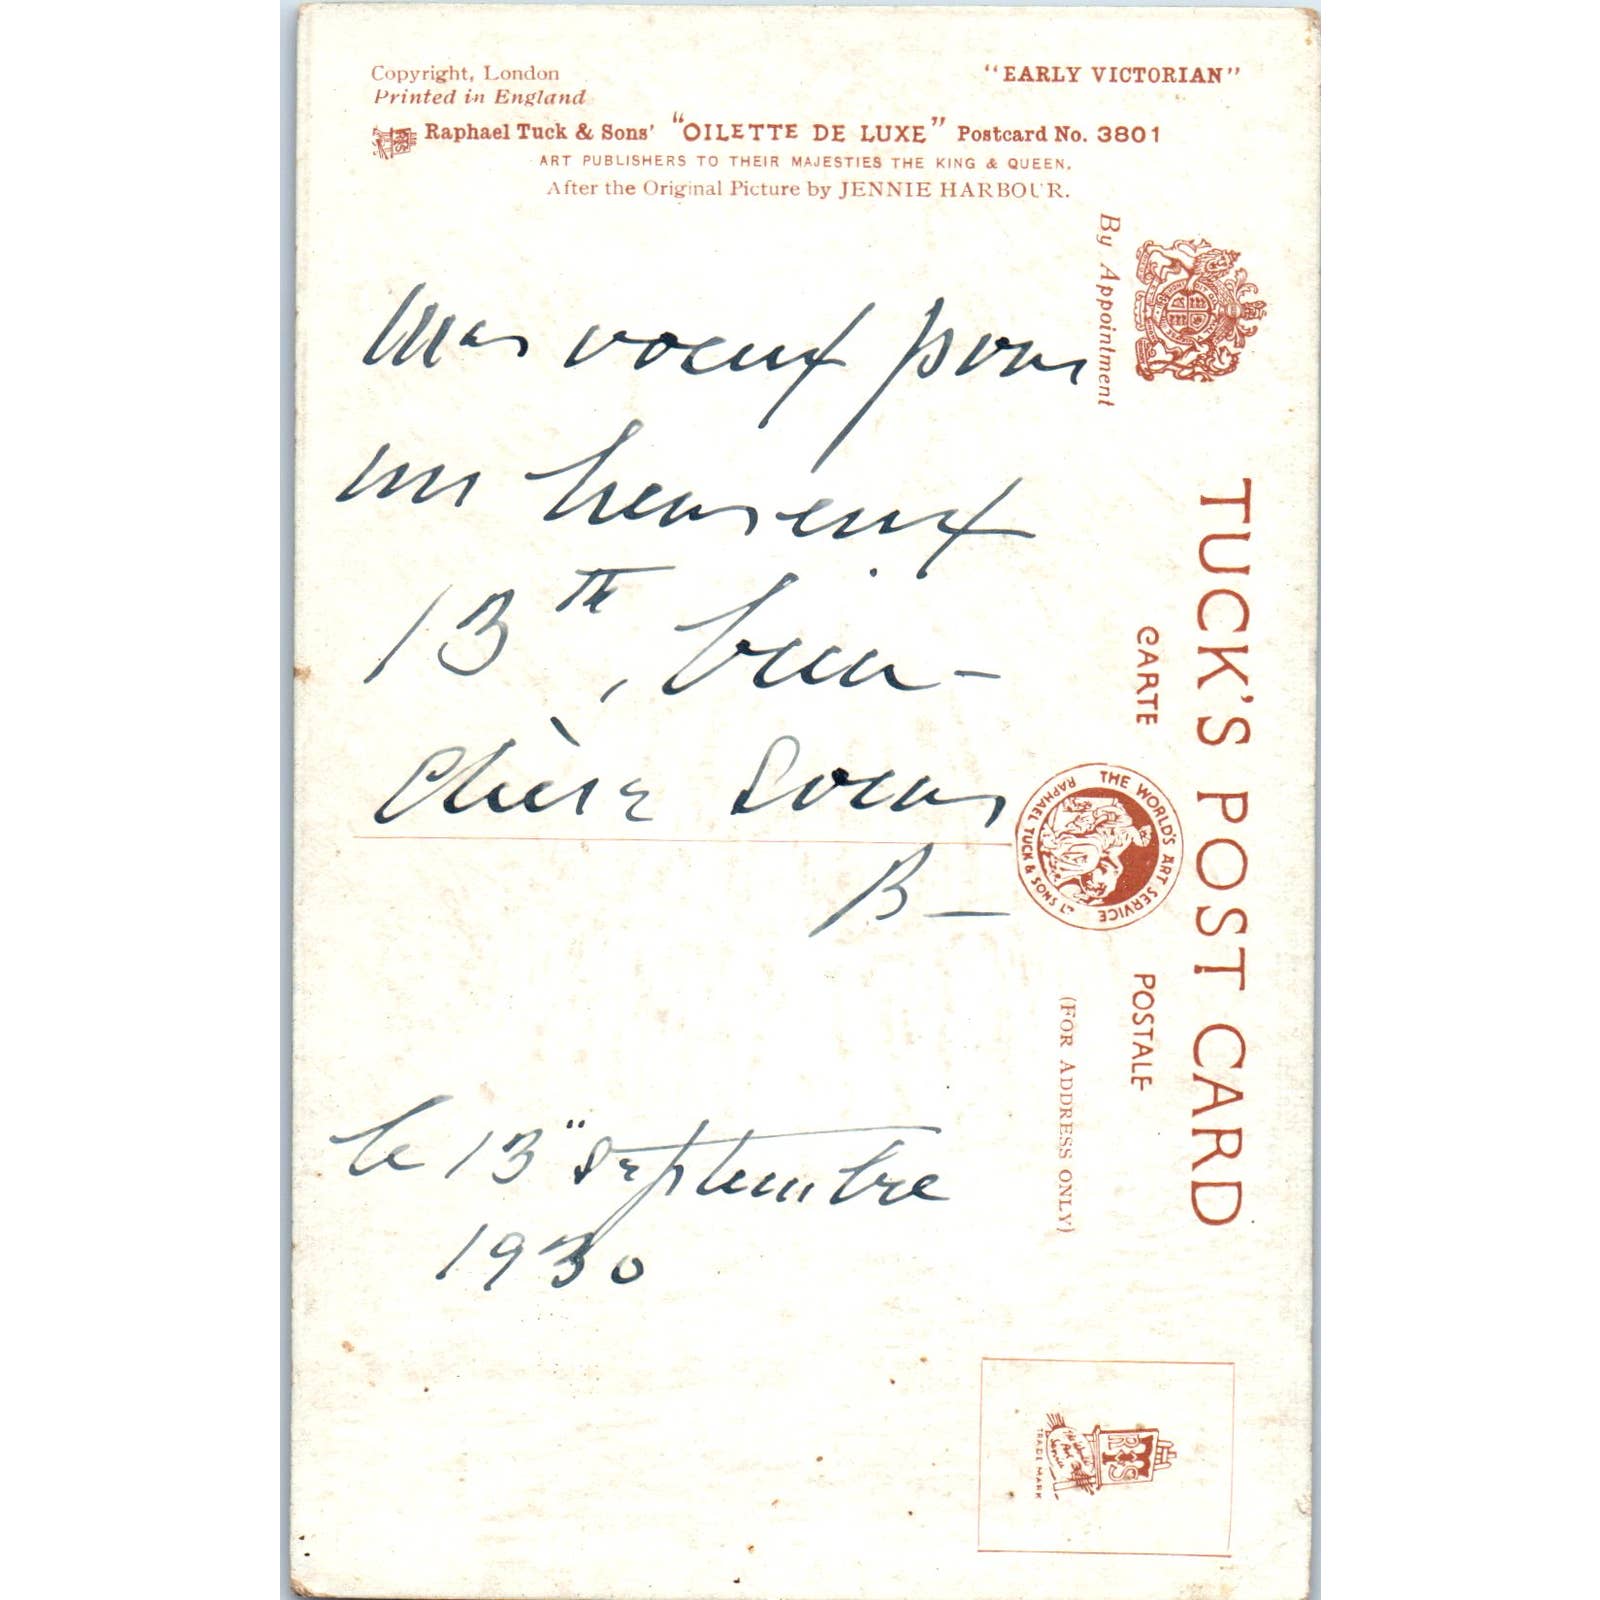 Copyright, London
Printed in England
"EARLY VICTORIAN"
Raphael Tuck & Sons' "OILETTE DE LUXE" Postcard No. 3801
ART PUBLISHERS TO THEIR MAJESTIES THE KING & QUEEN.
After the Original Picture by JENNIE HARBOUR.
By Appointment
TUCK'S POST CARD
CARTE POSTALE
THE WORLD'S ART SERVICE
RAPHAEL TUCK & SONS LTD
(FOR ADDRESS ONLY)
Mes voeux pour
un heureux
13th, bien-
chère
B—
le 13" Septembre
1930
TRADE MARK